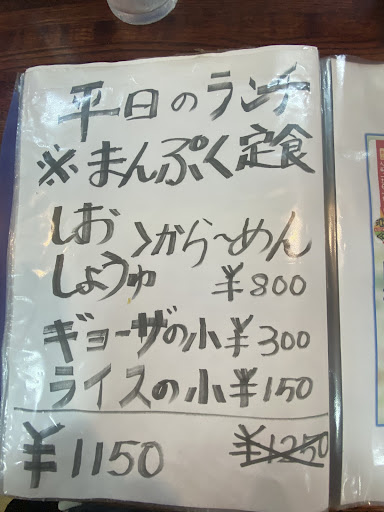 平日のランチ
※まんぷく定食
しお
しょうゆ
＞から〜めん
¥800
ギョーザの小¥300
ライスの小¥150
¥1150
¥1250